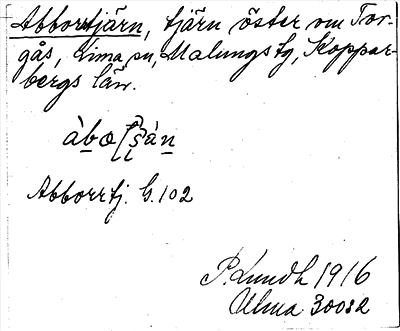 Abborrtjärn, tjärn öster om Tor-
gås, Lima sn, Malungs tg, Koppar-
bergs län.
Abborrtj. G. 102
P. Lundh 1916
Ulma 300:2